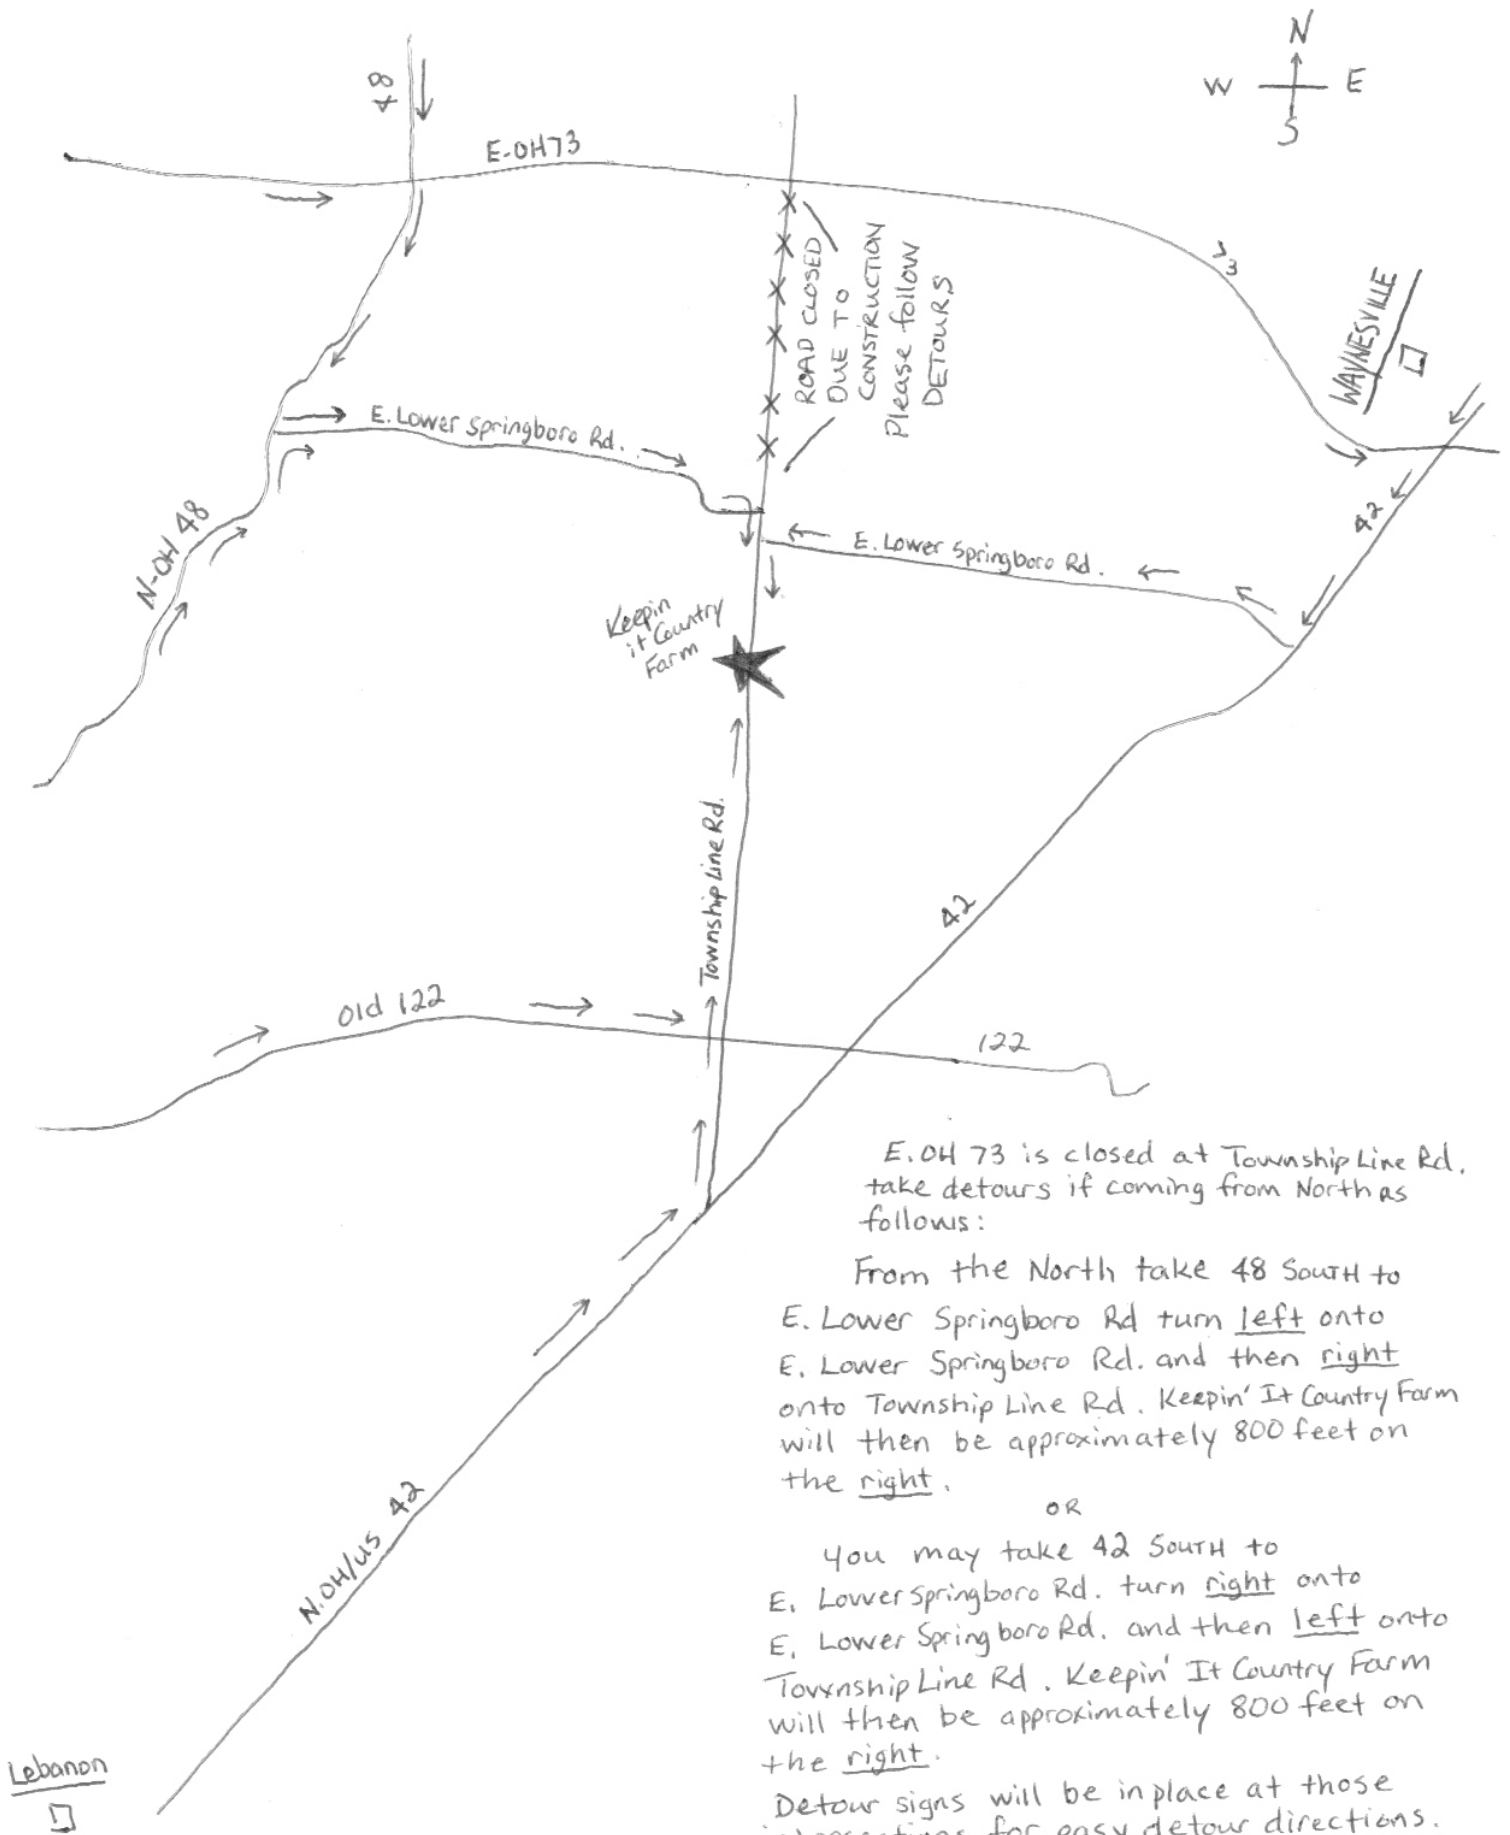 N
W E
S
48
E-OH73
73
ROAD CLOSED
DUE TO
CONSTRUCTION
Please follow
DETOURS
WAYNESVILLE
E. Lower Springboro Rd.
N-OH 48
42
E. Lower Springboro Rd.
Keepin
it Country
Farm
Township Line Rd.
42
Old 122
122
N.OH/US 42
Lebanon
E. OH 73 is closed at Township Line Rd.
take detours if coming from North as
follows:
From the North take 48 South to
E. Lower Springboro Rd turn left onto
E. Lower Springboro Rd. and then right
onto Township Line Rd. Keepin' It Country Farm
will then be approximately 800 feet on
the right.
OR
You may take 42 South to
E. Lower Springboro Rd. turn right onto
E. Lower Springboro Rd. and then left onto
Township Line Rd. Keepin' It Country Farm
will then be approximately 800 feet on
the right.
Detour signs will be in place at those
intersections for easy detour directions.